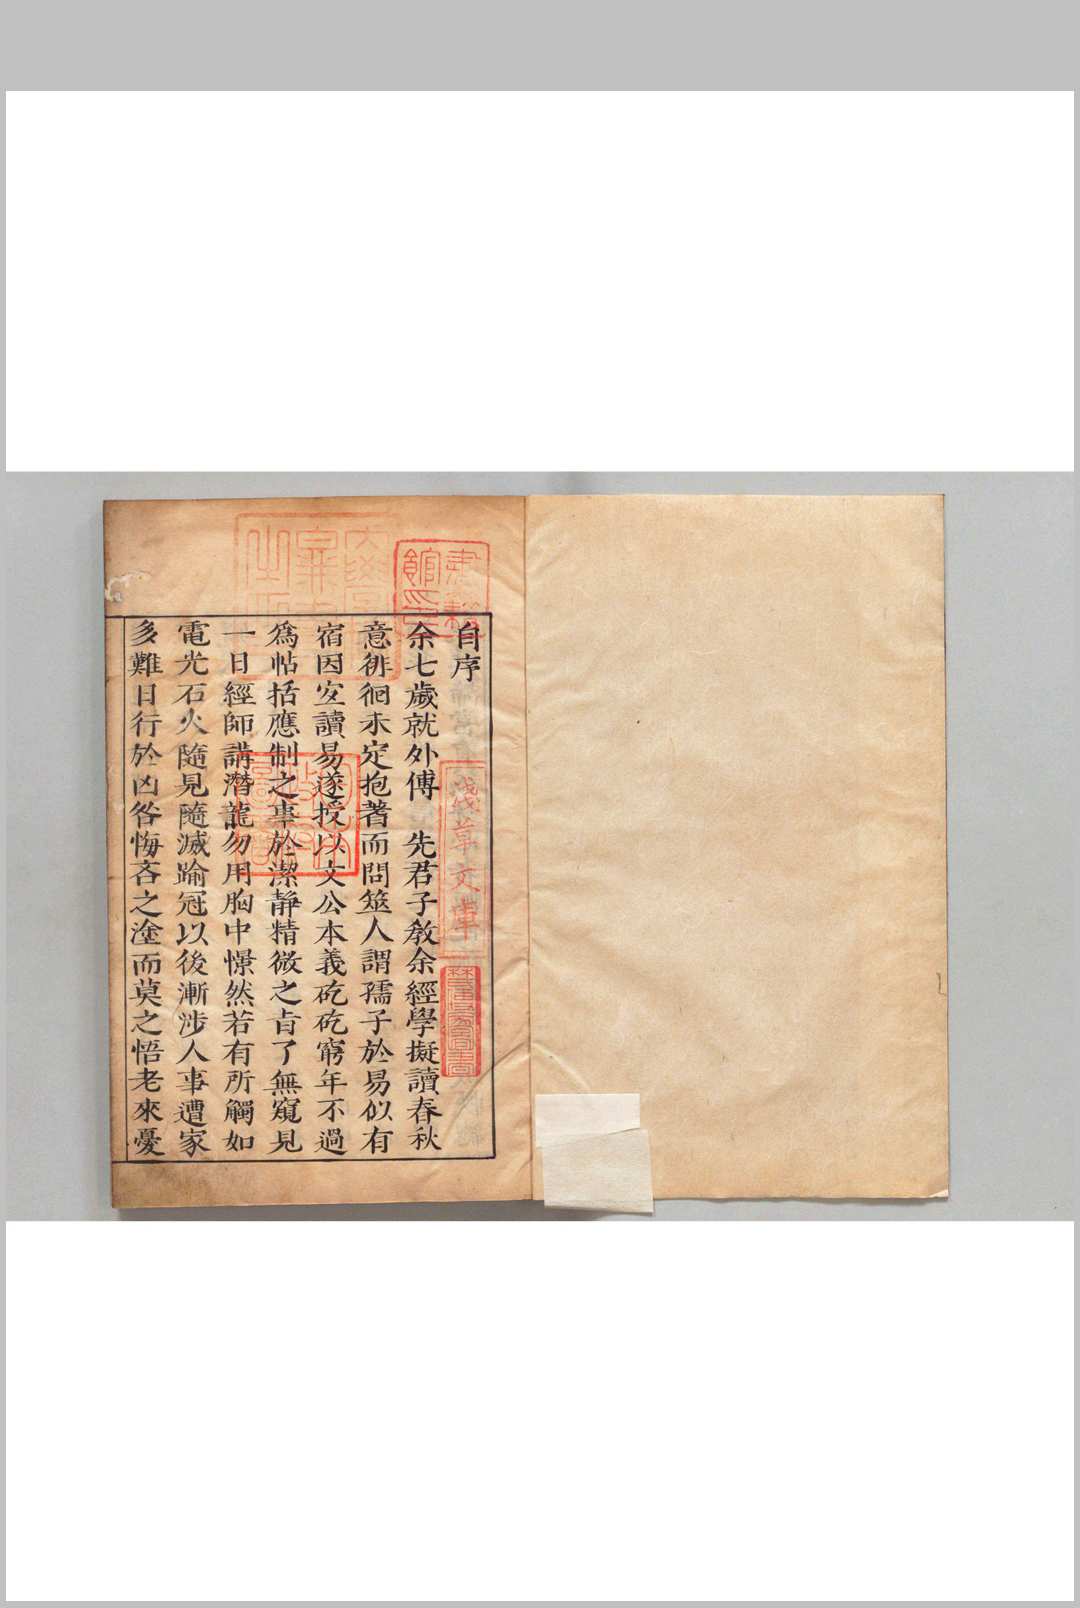 自序
余七歲就外傅　先君子教余經學擬讀春秋
意徘徊未定抱蓍而問筮人謂孺子於易似有
宿因宐讀易遂授以文公本義矻矻窮年不過
爲帖括應制之事於潔靜精微之㫖了無窺見
一日經師講潛龍勿用胸中憬然若有所觸如
電光石火隨見隨滅踰冠以後漸涉人事遭家
多難日行於凶咎悔吝之塗而莫之悟老來憂
淺草文庫